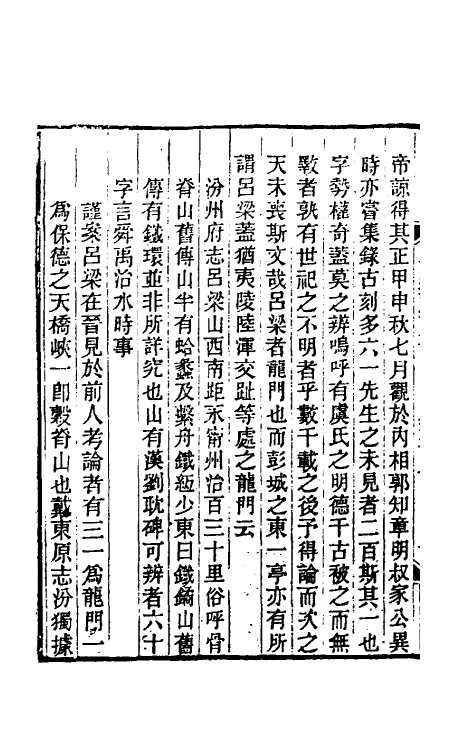 帝諒得其正甲申秋七月觀於內相郭知章明叔家公異
時亦嘗集錄古刻多六一先生之未見者二百斯其一也
字勢權奇蓋莫之辨嗚呼有虞氏之明德千古被之而無
斁者孰有世祀之不明者乎數千載之後予得論而次之
天未喪斯文哉呂梁者龍門也而彭城之東一亭亦有所
謂呂梁蓋猶夷陵陸渾交趾等處之龍門云
汾州府志呂梁山西南距永甯州治百三十里俗呼骨
脊山舊傳山半有蛤蠡及繫舟鐵絙少東曰鐵鏑山舊
傳有鐵環並非所詳究也山有漢劉耽碑可辨者六十
字言舜禹治水時事
謹案呂梁在晉見於前人考論者有三一為龍門一
為保德之天橋峽一卽穀脊山也戴東原志汾獨據